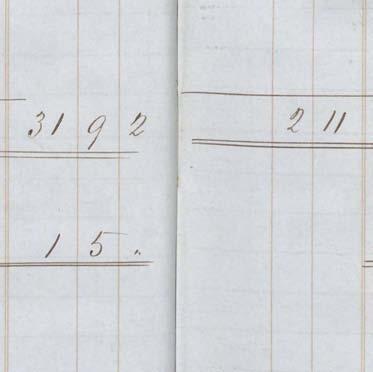 31 9 2
1 5 "
2 11